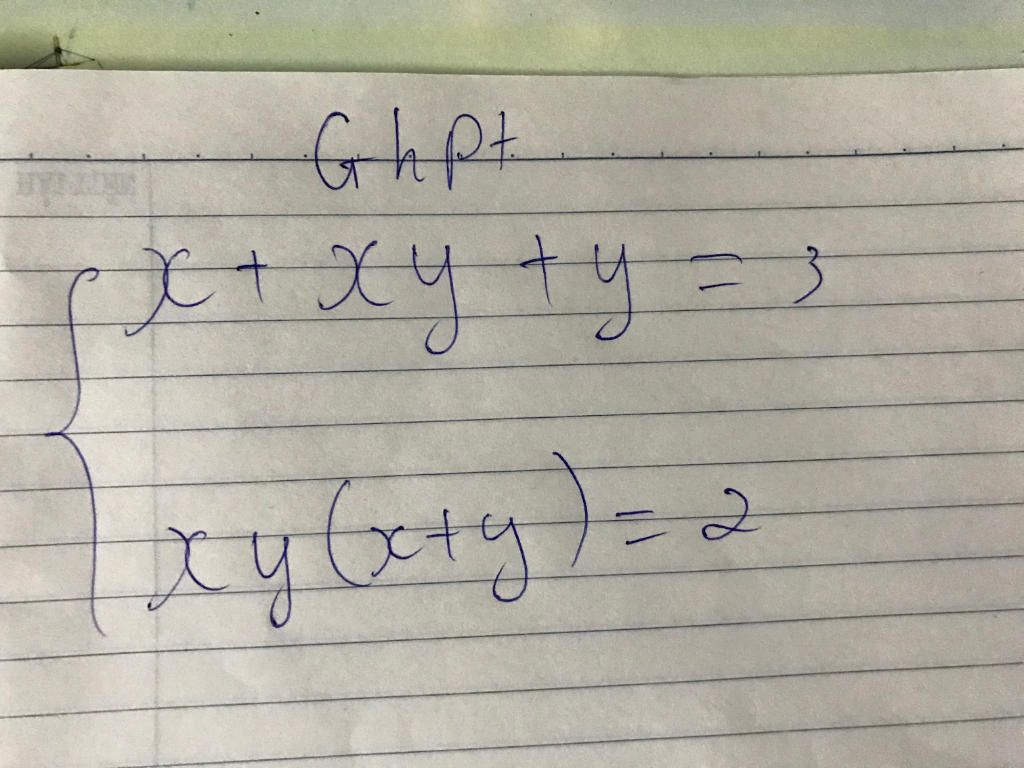 Ghpt
x + xy + y = 3
xy(x+y) = 2